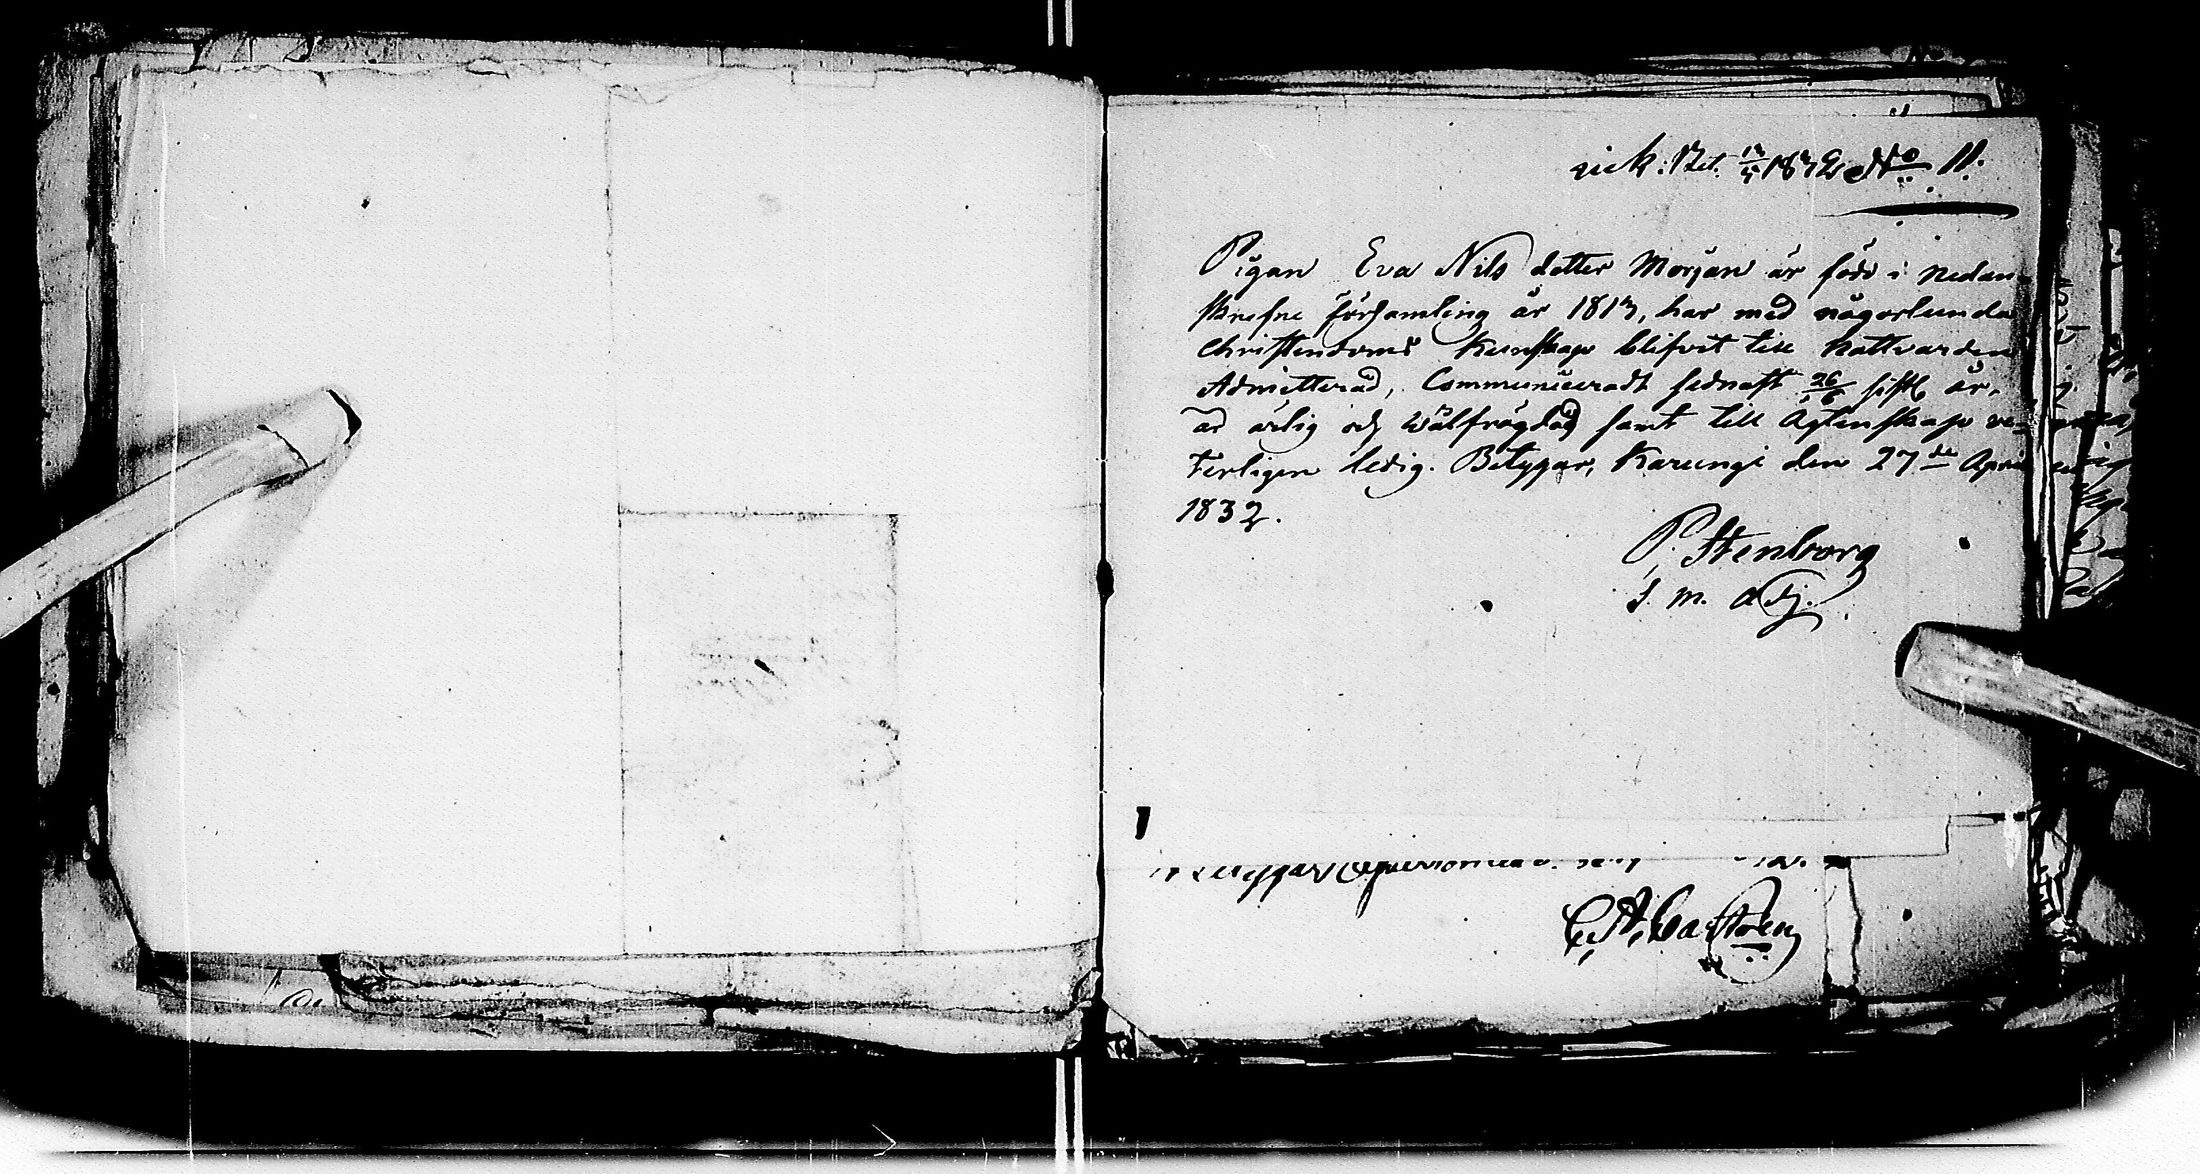 1832 No 11.
Pigan Eva Nils dotter Morjan är född i nedan-
skrefne församling år 1813, har med någorlunda
Christendoms Kunskap blifvit till nattvarden
Admitterad, Communiceradt sednast 26/6 sistl. år,
är ärlig och wälfrägdad samt till Agtenskap ve-
terligen ledig. Betygar, Karungi den 27de April
1832.
P. Stenborg
s. m. adj.
C. A. Castren